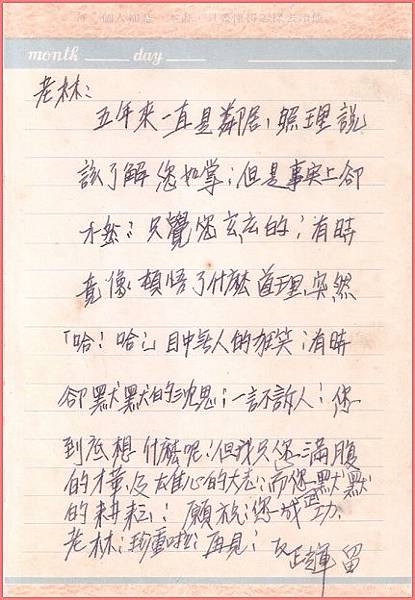 個人
month day
老林:
五年來一直是鄰居,照理說
該了解您如掌;但是事実上卻
不然?只覺您玄玄的;有時
竟像頓悟了什麼道理,突然
「哈!哈!」目中無人的狂笑;有時
卻默默的沈思;一言不訴人!您
到底想什麼呢?但我只您滿腹
的才華及雄心的大志;而您默默
的耕耘!願祝您成功
老林;珍重啦;再見;友 正輝 留